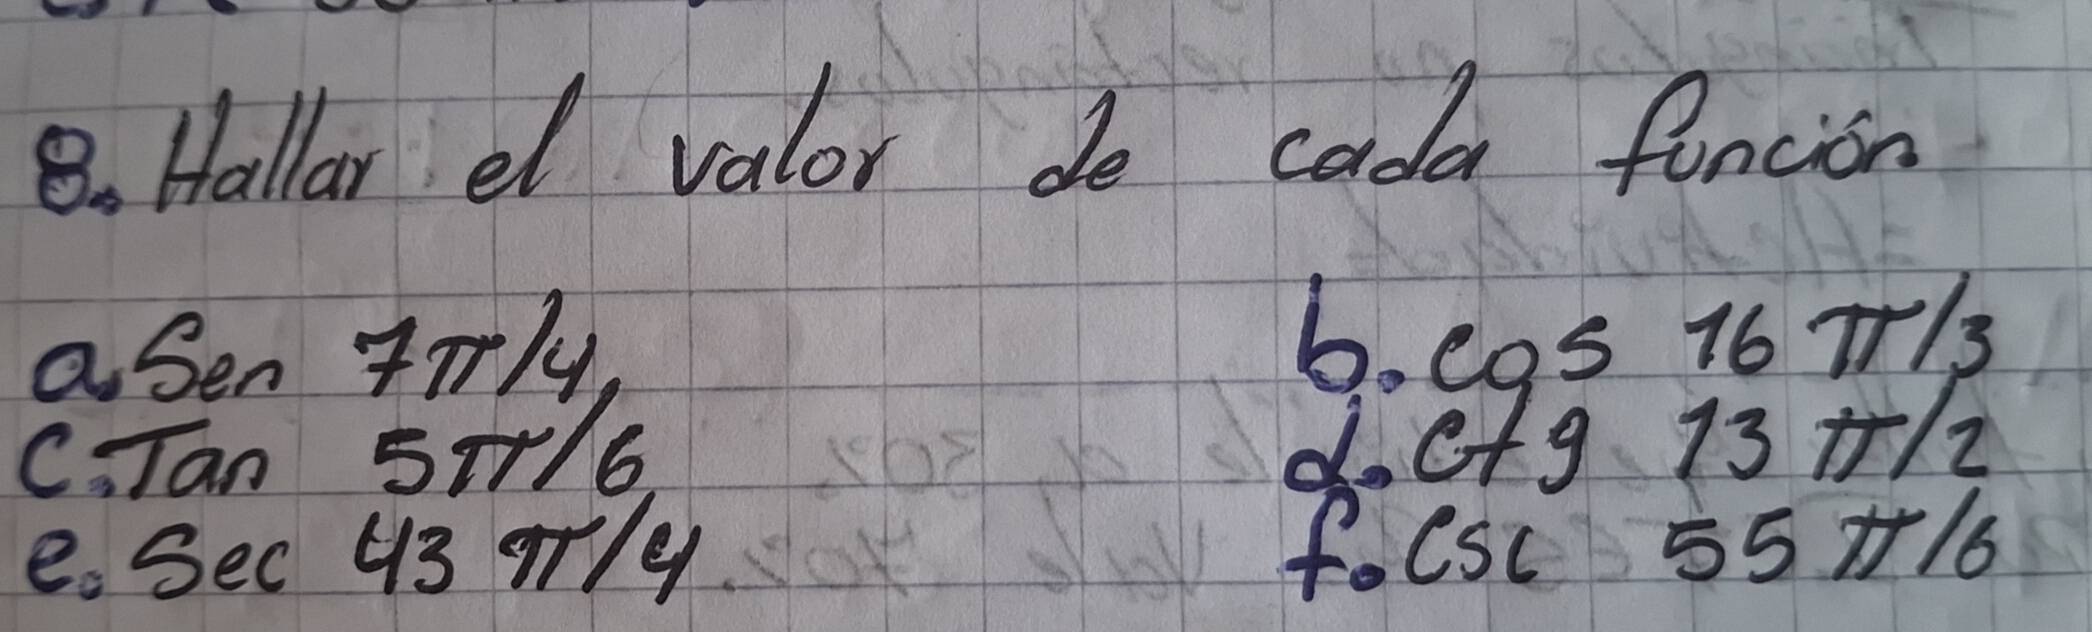 8. Hallar el valor de cada función
a. Sen 7π/4, b. cos 16 π/3
c. Tan 5π/6, d. ctg 13 π/2
e. Sec 43 π/4 f. Csc 55 π/6